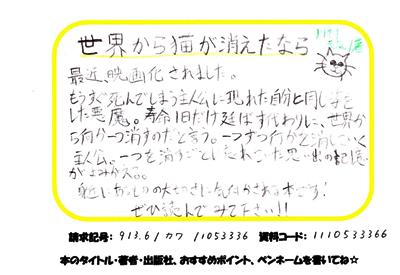 世界から猫が消えたなら
最近、映画化されました。
もうすぐ死んでしまう主人公に現れた自分と同じ姿を
した悪魔。寿命1日だけ延ばす代わりに、世界か
ら何か一つ消すのだと言う。一つずつ何かを消していく
主人公。一つを消すごとに忘れていた思い出の記憶
がよみがえる。
身近にあるものの大切さに気付かされる本です!
ぜひ読んでみて下さい!!
請求記号: 913.6/カワ /1053336 資料コード: 1110533366
本のタイトル・著者・出版社、おすすめポイント、ペンネームを書いてね☆